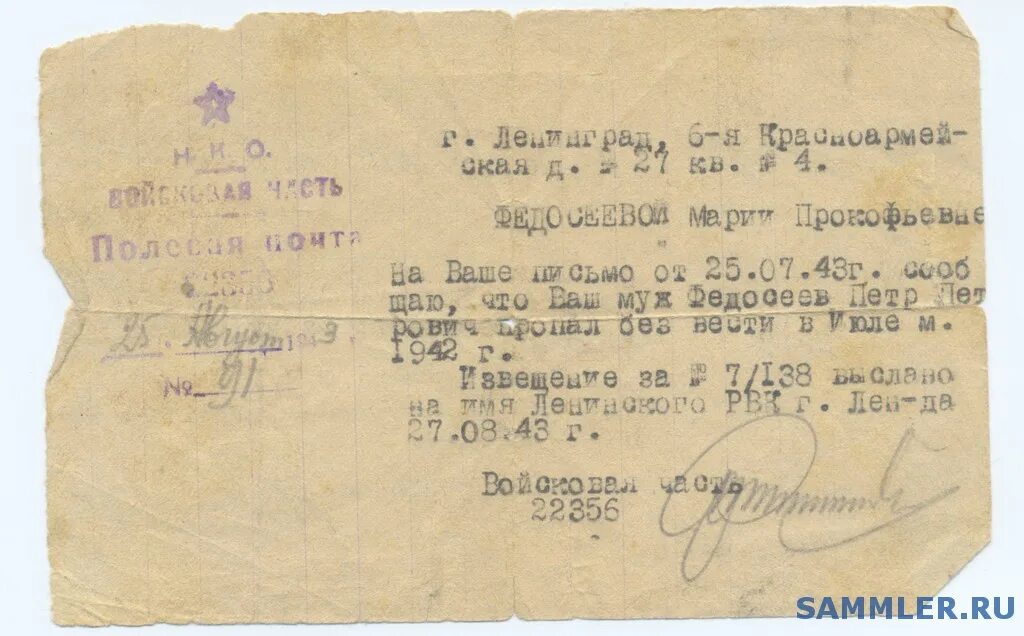 Н. К. О.
ВОЙСКОВАЯ ЧАСТЬ
Полевая почта
25. Август 1943 г.
№ 91
г. Ленинград, 6-я Красноармей-
ская д. № 27 кв. № 4.
ФЕДОСЕЕВОЙ Марии Прокофьевне
На Ваше письмо от 25.07.43г. сооб
щаю, что Ваш муж Федосеев Петр Пет
рович пропал без вести в Июле м.
1942 г.
Извещение за № 7/138 выслано
на имя Ленинского РВК г. Лен-да
27.08.43 г.
Войсковая часть
22356
SAMMLER.RU